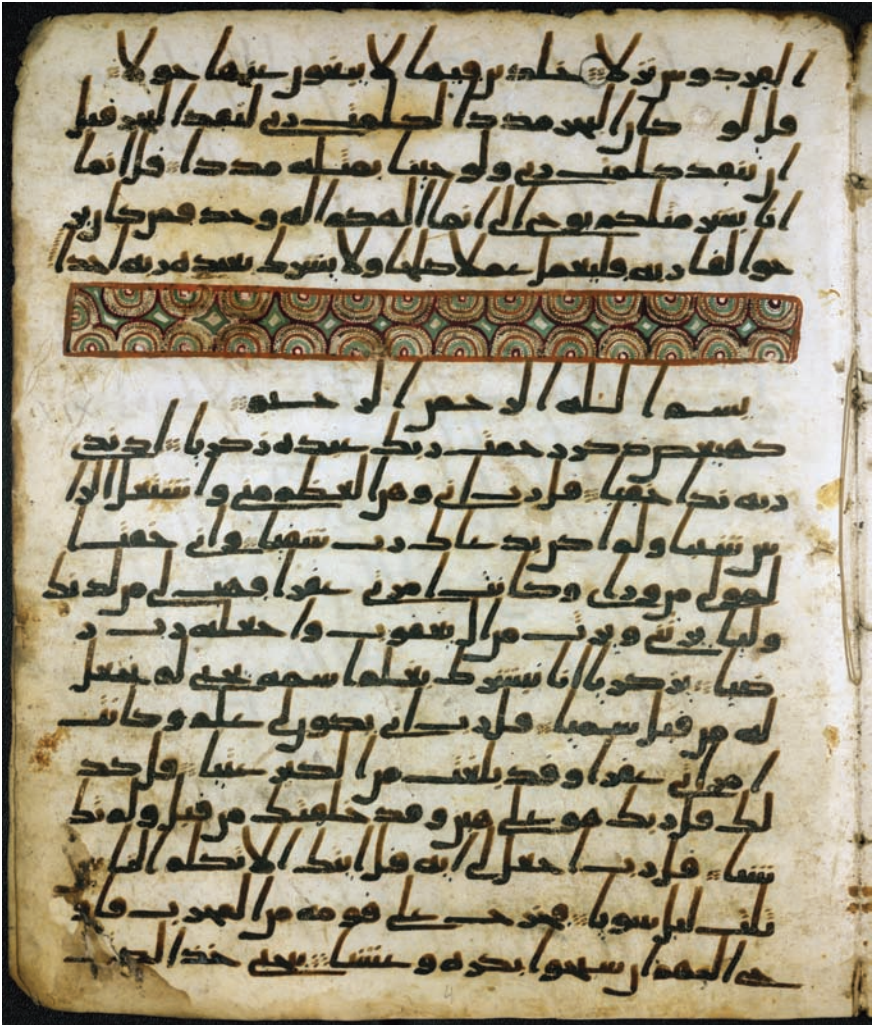 الفردوس نزلا خلدين فيها لا يبغون عنها حولا
قل لو كان البحر مددا لكلمت ربي لنفد البحر قبل
ان تنفد كلمت ربي ولو جينا بمثله مددا قل انما
انا بشر مثلكم يوحى الي انما الهكم اله وحد فمن كان ير
جوا لقا ربه فليعمل عملا صلحا ولا يشرك بعبده ربه احدا
بسم الله الرحمن الرحيم
كهيعص ذكر رحمت ربك عبده زكريا اذ ندى
ربه ندا خفيا قل رب اني وهن العظم مني واشتعل الرا
س شيبا ولم اكن بدعاك رب شقيا واني خفت ا
لمولي من وراي وكانت امرتي عقرا فهب لي من لدنك
وليا يرثني ويرث من ال يعقوب واجعله رب ر
ضيا يزكريا انا نبشرك بغلم اسمه يحيى لم نجعل
له من قبل سميا قل رب انى يكون لي غلم وكانت
امرتي عقرا وقد بلغت من الكبر عتيا قل كذ
لك قل ربك هو علي هين وقد خلقتك من قبل ولم تك
شيا قل رب اجعل لي ايه قل ايتك الا تكلم الناس
ثلث ليل سويا فخرج على قومه من المحرب فاو
حى اليهم ان سبحوا بكره وعشيا يحيى خذ الكتب